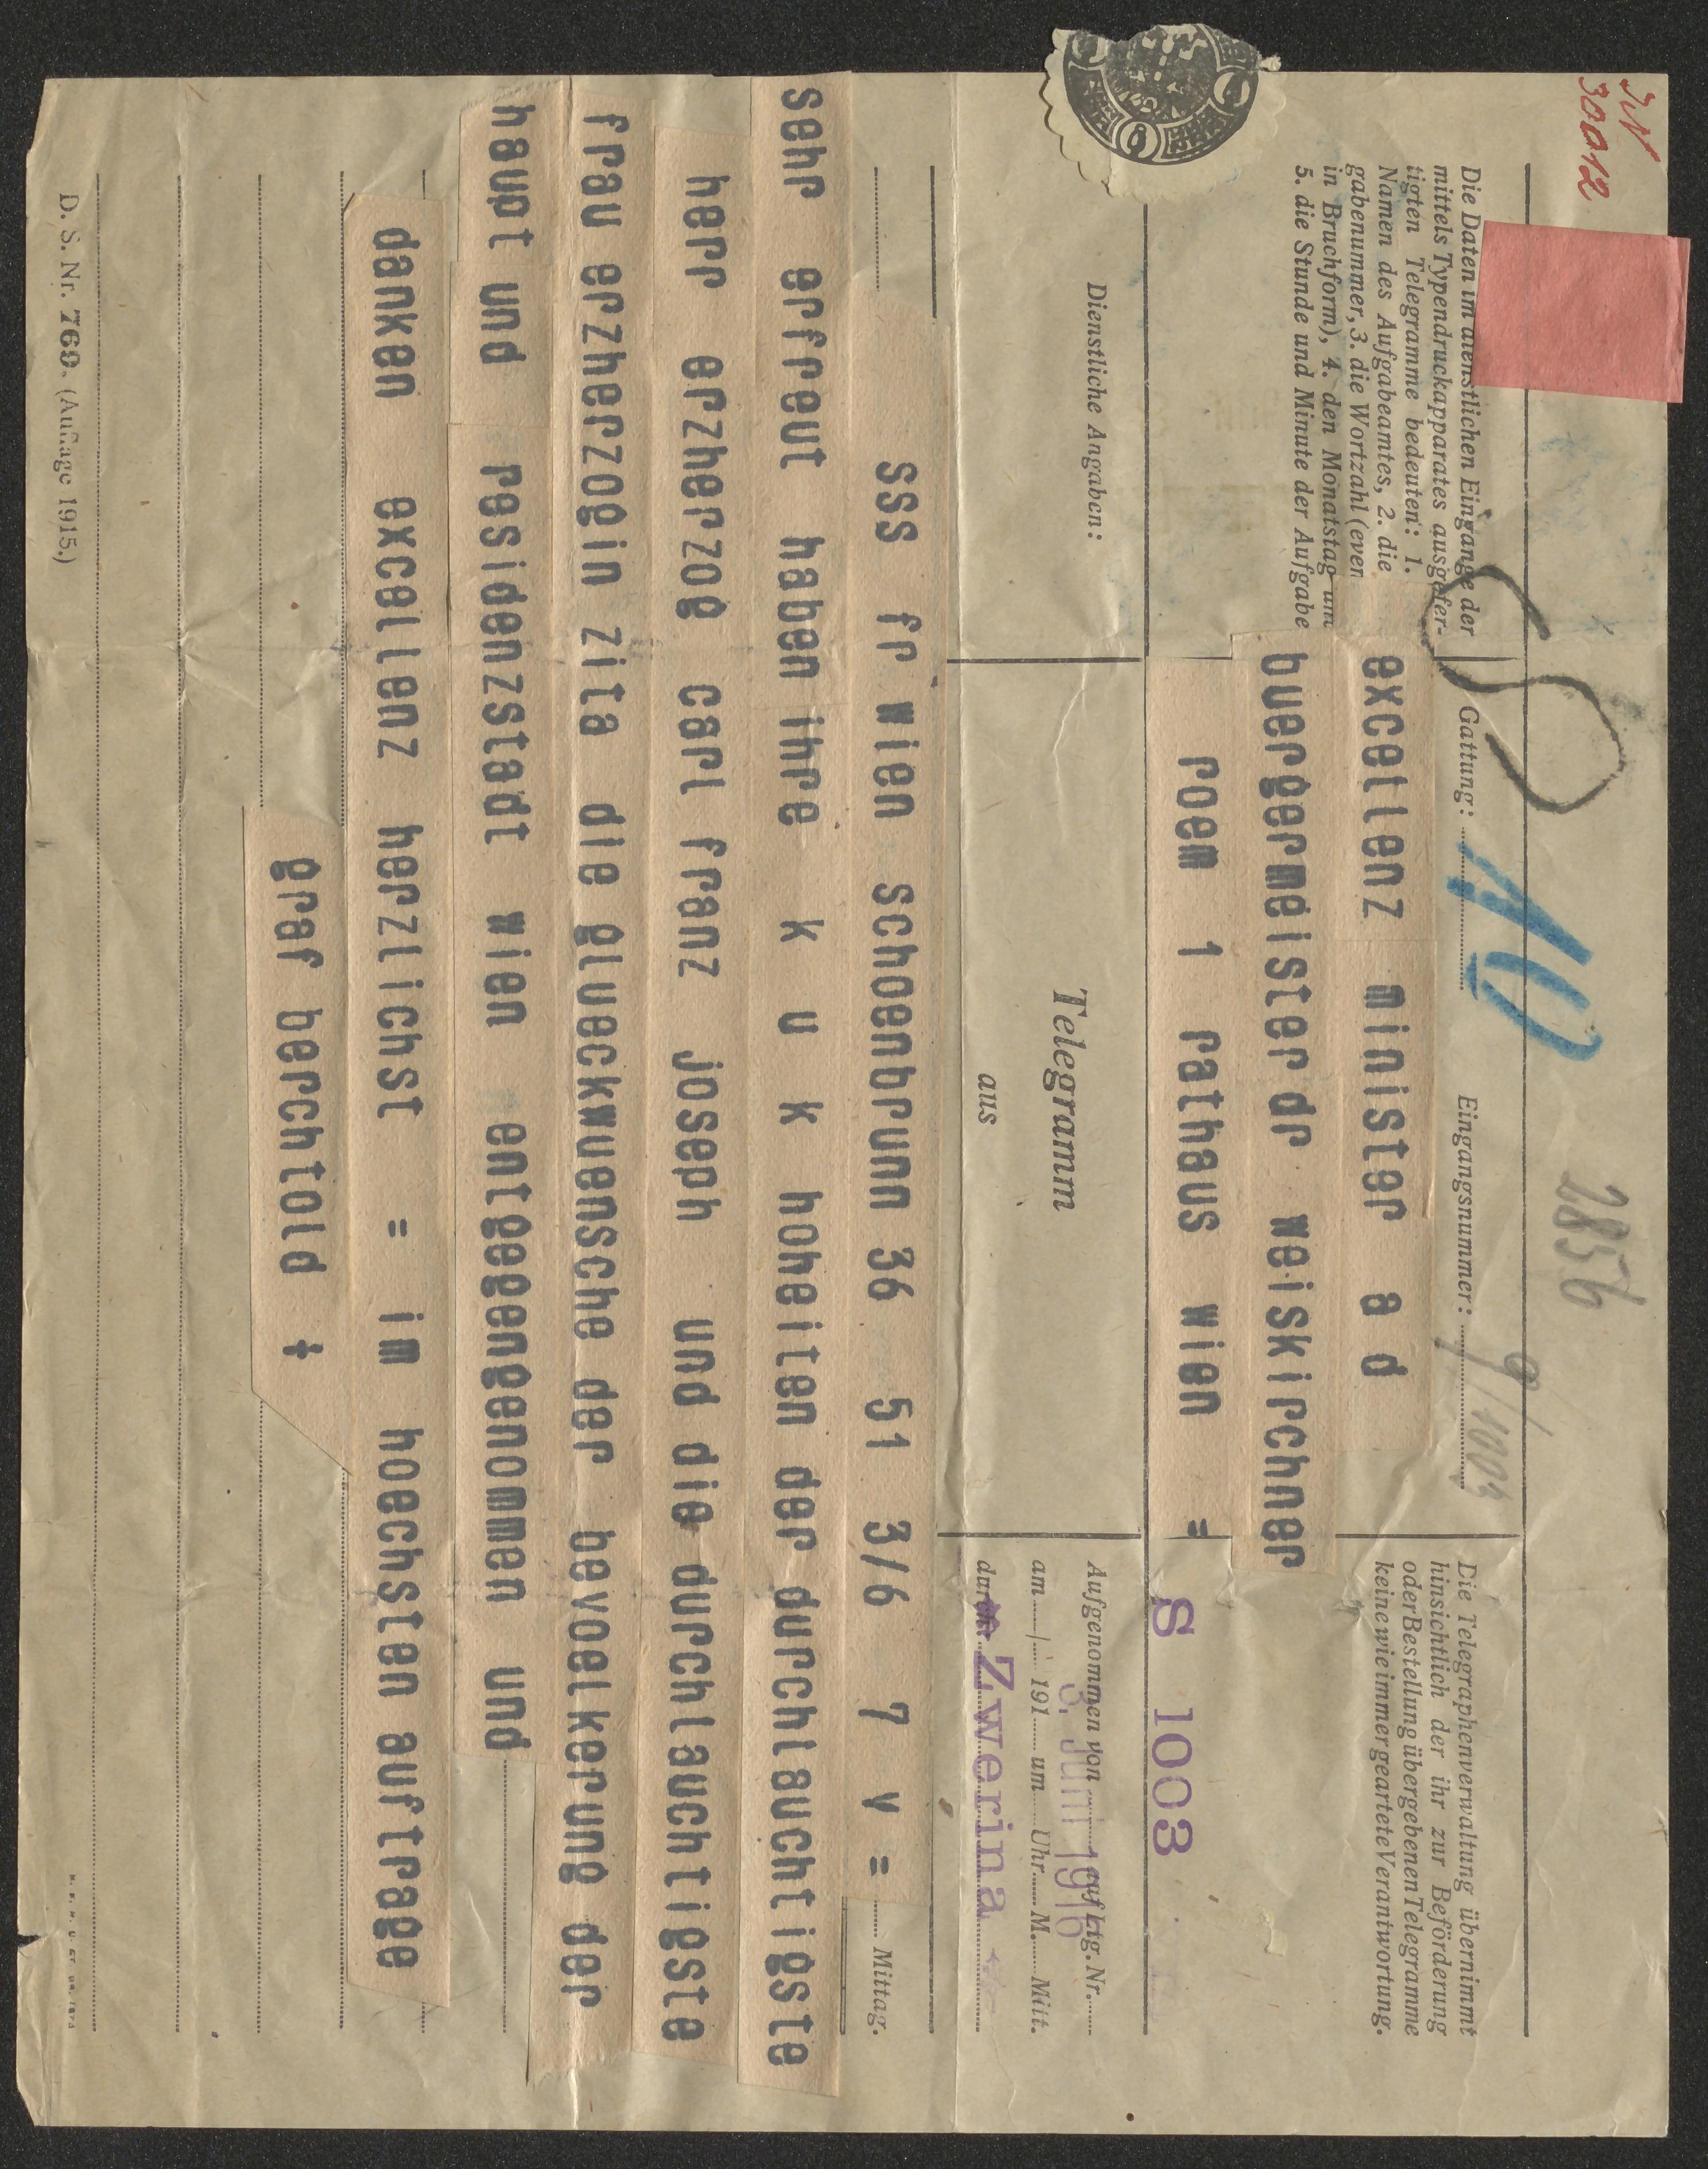 IN
30012
2856
Die Daten im dienstlichen Eingange der
mittels Typendruckapparates ausgefer-
tigten Telegramme bedeuten: 1.
Namen des Aufgabeamtes, 2. die
gabenummer, 3. die Wortzahl (even
in Bruchform), 4. den Monatstag um
5. die Stunde und Minute der Aufgabe
Gattung:
10
Eingangsnummer: 9/1003
excellenz minister a d
buergermeister dr weiskirchner
roem 1 rathaus wien =
Die Telegraphenverwaltung übernimmt
hinsichtlich der ihr zur Beförderung
oder Bestellung übergebenen Telegramme
keine wie immer geartete Verantwortung.
S 1003
Dienstliche Angaben:
Telegramm
aus
Aufgenommen von auf Ltg. Nr.
3. Juni 1916
am / 191 um Uhr M. Mitt.
durch Zwerina
sss fr wien schoenbrunn 36 51 3/6 7 v =
Mittag.
sehr erfreut haben ihre k u k hoheiten der durchlauchtigste
herr erzherzog carl franz joseph und die durchlauchtigste
frau erzherzogin zita die glueckwuensche der bevoelkerung der
haupt und residenzstadt wien entgegengenommen und
danken excellenz herzlichst = im hoechsten auftrage
graf berchtold +
D. S. Nr. 769. (Auflage 1915.)